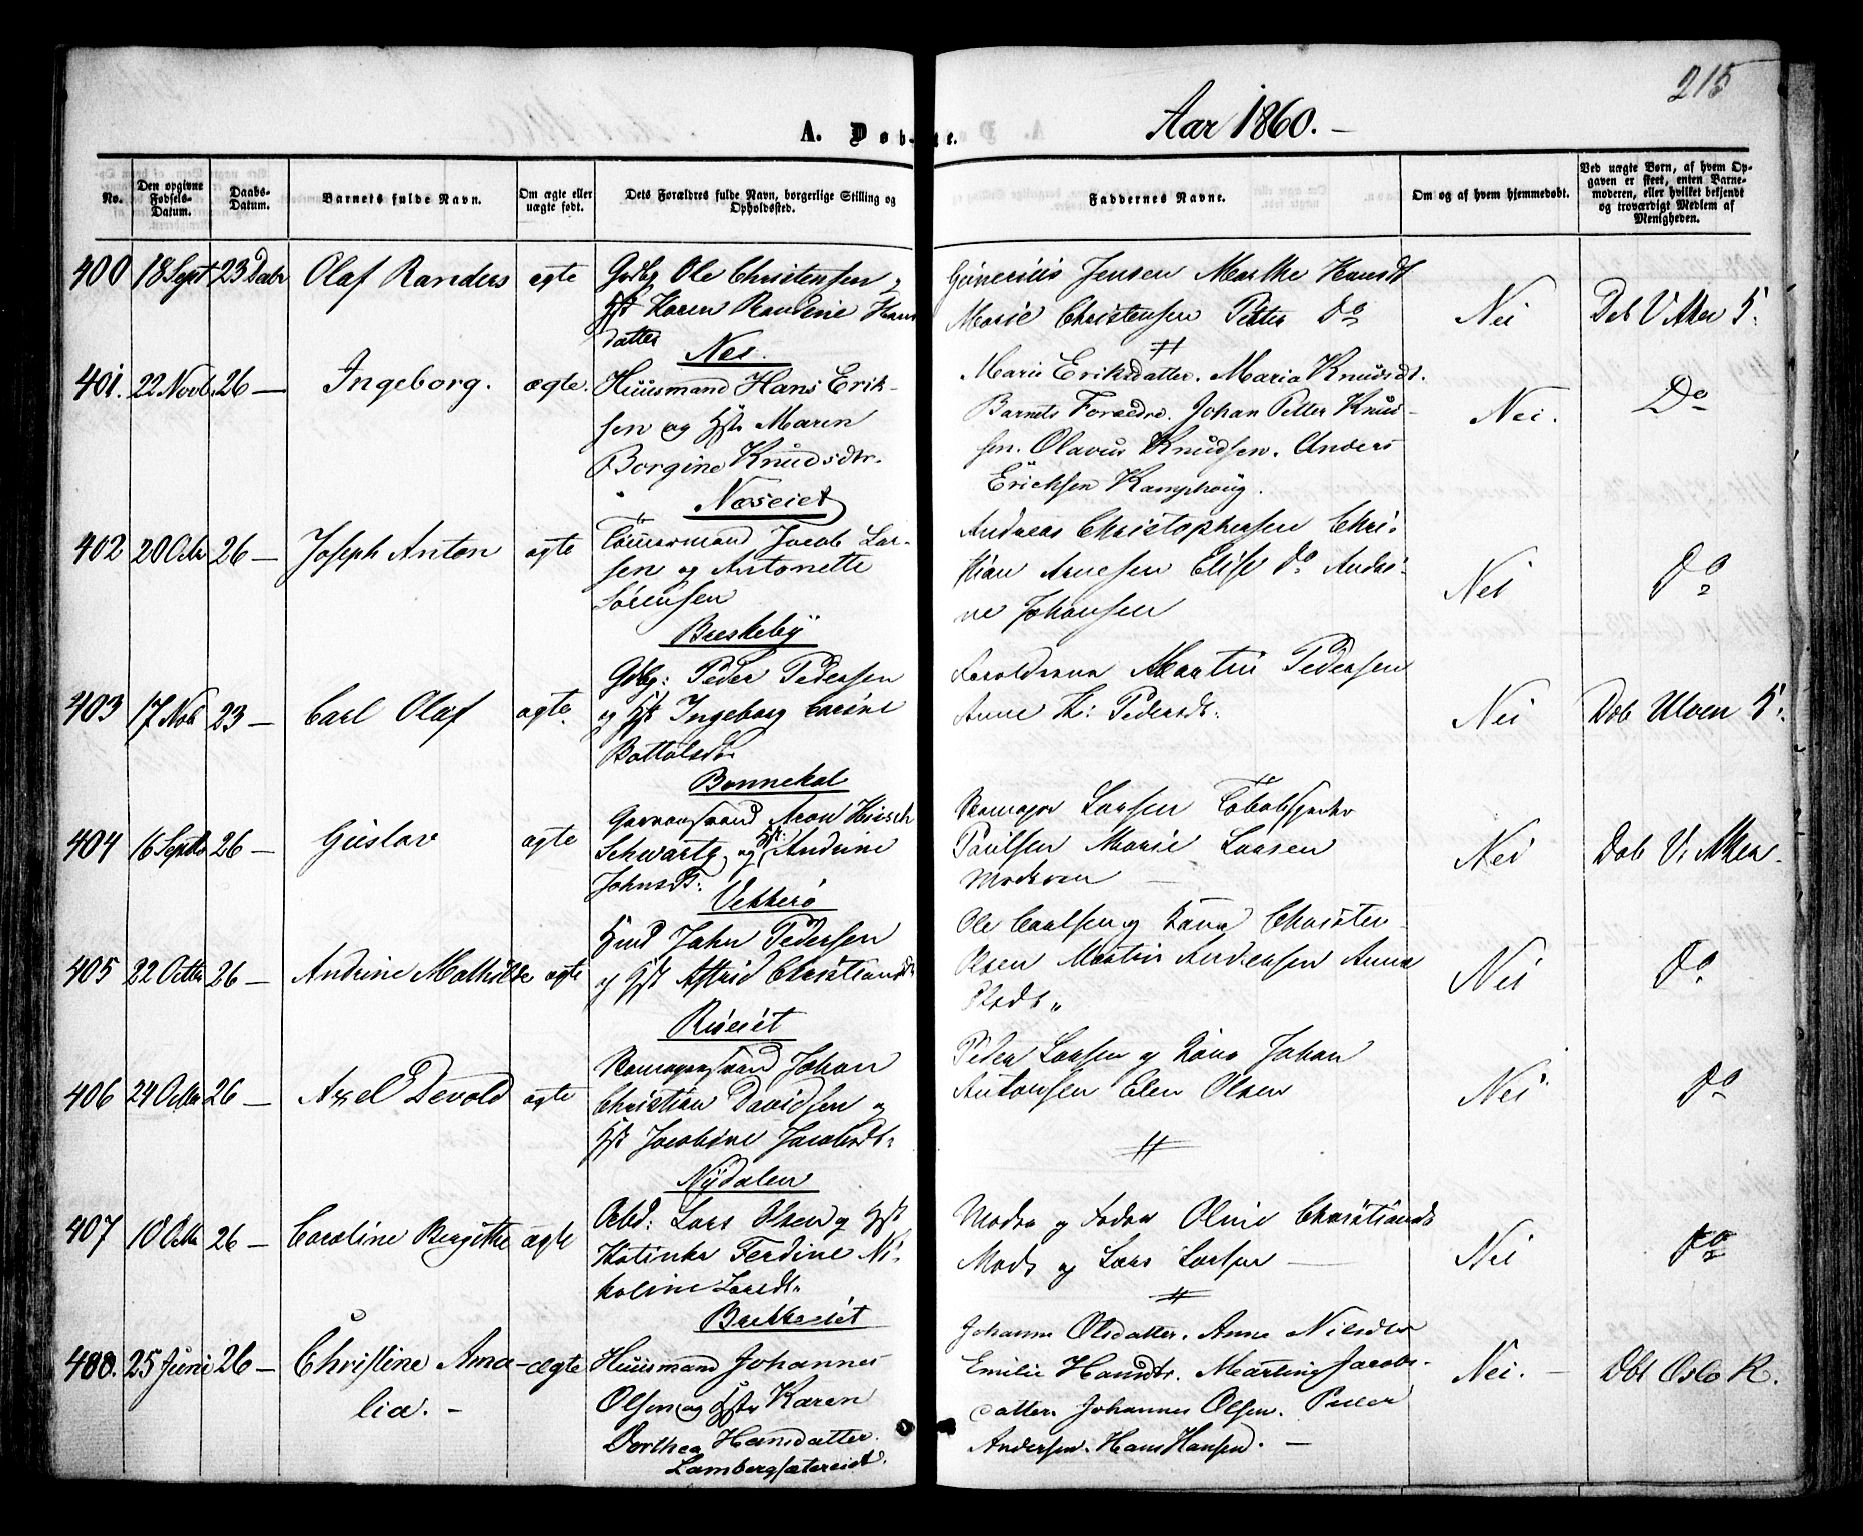 215
A. Døb-te.
Aar 1860. —
No.
Den opgivne Fødsels-Datum.
Daabs-Datum.
Barnets fulde Navn.
Om ægte eller uægte født.
Dets Forældres fulde Navn, borgerlige Stilling og Opholdssted.
Faddernes Navne.
Om og af hvem hjemmedøbt.
Ved uægte Børn, af hvem Opgaven er skeet, enten Barnemoderen, eller hvilket bekjendt og troværdigt Medlem af Menigheden.
400 18 Sept 23 Decbr Olaf Randers ægte
Ole Christensen
Hst Karen Randine Hans
datter
Nes.
Jensen Marthe Hansdt
Marie Christensen Petter Do
Nei
Døb V. Aker 5.
401. 22 Novb. 26 — Ingeborg. ægte.
Huusmand Hans Erik-
sen og Hst. Maren
Borgine Knudsdtr.
Næseiet
Marie Eriksdatter. Maria Knudsdt.
Barnets Forældre. Johan Petter Knud-
sen. Olavus Knudsen. Anders
Ericksen Kamphoug.
Nei.
Do
402 20 Octr 26 — Joseph Anton ægte
Tømmermand Jacob Lar-
sen og Antonette
Sørensen
Briskeby
Andreas Christophersen Chri-
stian Arnesen Elise Do Andri-
ne Johansen
Nei
Do
403 17 Nob 23 — Carl Olaf ægte.
Gdbg: Peder Pedersen
og Hst Ingeborg Carine
Bottolsdtr
Bonnekal
Forældrene Martin Pedersen
Anne K: Pedersdt.
Nei
Døb Ulven 5.
404 16 Septb 26 — Gustav ægte
Aron Hirsch
Schwartz og Hst: Andrine
Johnsdt:
Vekkerø
Larsen
Paulsen Marie Larsen
Moderen —
Nei
Døb V. Aker.
405 22 Octbr 26 — Andrine Mathilde ægte
John Pedersen
og Hst Astrid Christiansdt
Riseiet
Ole Carlsen og Kone Christen
Olsen Martin Andersen Anna
Nei
Do
406 24 Octbr 26 — Axel Devold ægte
Johan
Christian Davidsen og
Hst Jacobine Jacobsdt.
Nydalen
Peder Larsen og Kone Johan
Antonsen Elen Olsen
Nei
Do
407 10 Octb 26 — Caroline Bergithe ægte
Arbd: Lars Olsen og Hst
Katinka Ferdine Ni-
koline Larsdt.
Bakkeeiet
Moder og Fader Oline Christiansdt
Mads og Lars Larsen —
Nei
Do
408. 25 Juni 26 — Christine Ama- ægte
lia. —
Huusmand Johannes
Olsen og Hst. Karen
Dorthea Hansdatter.
Lambergsætereiet.
Johanne Olsdatter. Anne Nielsdtr
Emilie Hansdtr. Martine Jacobs-
datter. Johannes Olsen. Peder
Andersen. Hans Hansen. —
Nei. —
Dbt Oslo K.